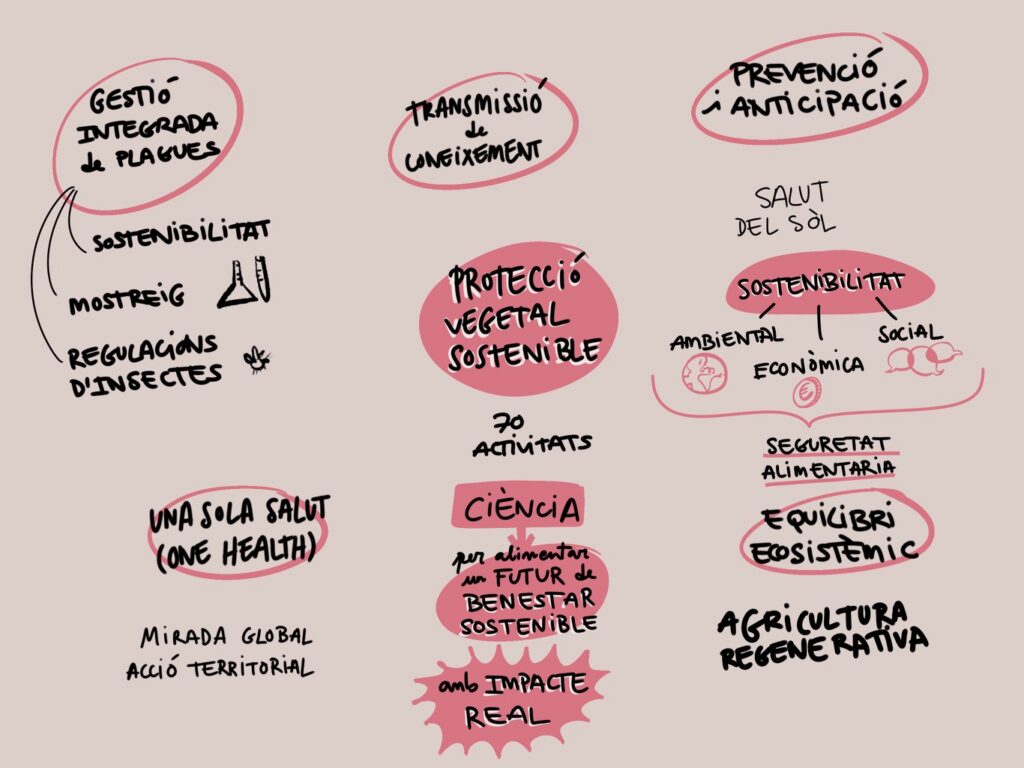 GESTIÓ
INTEGRADA
de PLAGUES
SOSTENIBILITAT
MOSTREIG
REGULACIONS
D'INSECTES
UNA SOLA SALUT
(ONE HEALTH)
MIRADA GLOBAL
ACCIÓ TERRITORIAL
TRANSMISSIÓ
de
CONEIXEMENT
PROTECCIÓ
VEGETAL
SOSTENIBLE
70
ACTIVITATS
CIÈNCIA
per alimentar
un FUTUR de
BENESTAR
SOSTENIBLE
amb IMPACTE
REAL
PREVENCIÓ
i ANTICIPACIÓ
SALUT
DEL SÒL
SOSTENIBILITAT
AMBIENTAL
ECONÒMICA
SOCIAL
€
SEGURETAT
ALIMENTARIA
EQUILIBRI
ECOSISTÈMIC
AGRICULTURA
REGENERATIVA